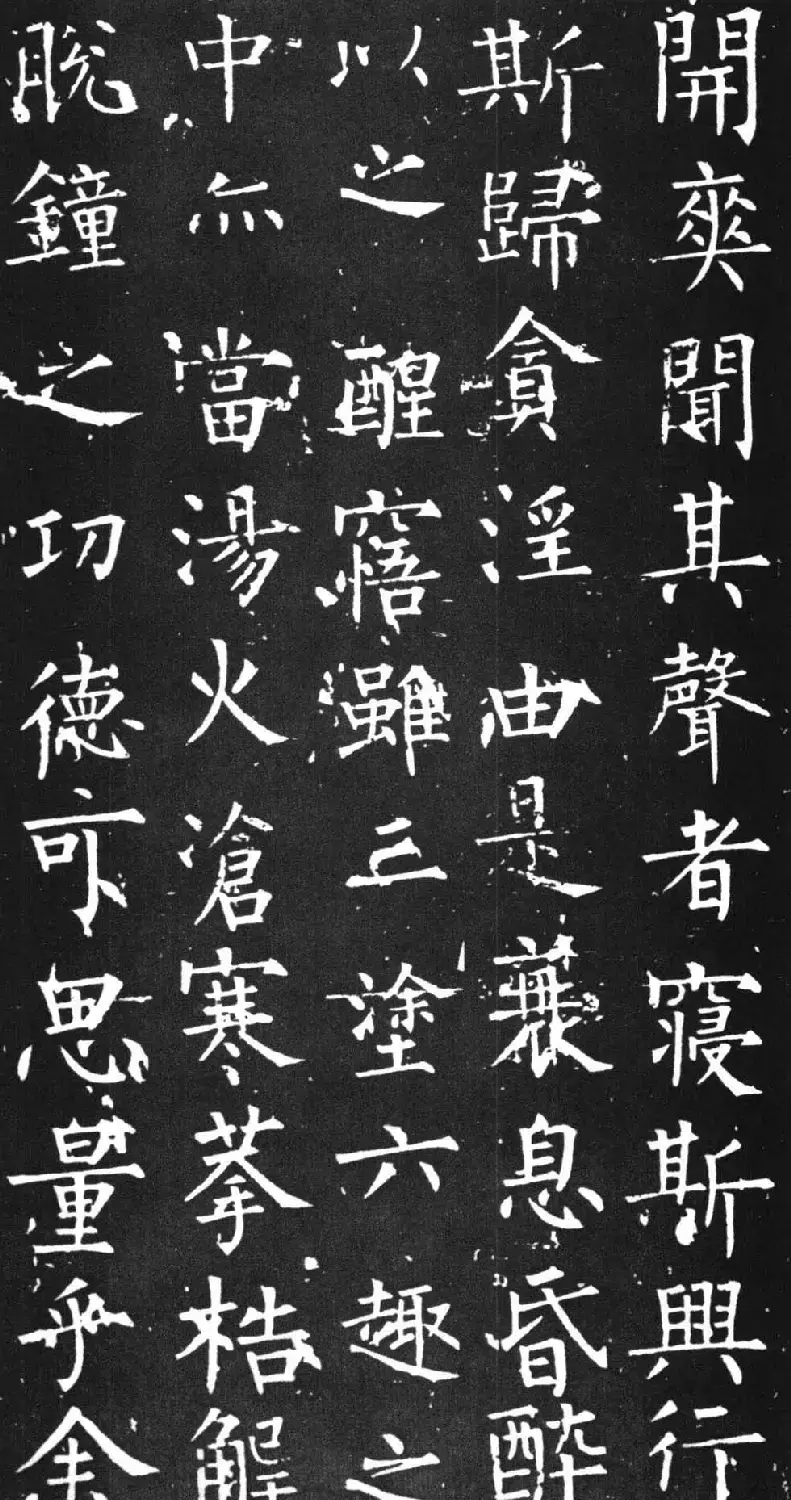 開爽聞其聲者寢斯興行
斯歸貪淫由是衰息昏醉
以之醒寤雖三塗六趣之
中亦當湯火滄寒拲梏解
脫鐘之功德可思量乎余